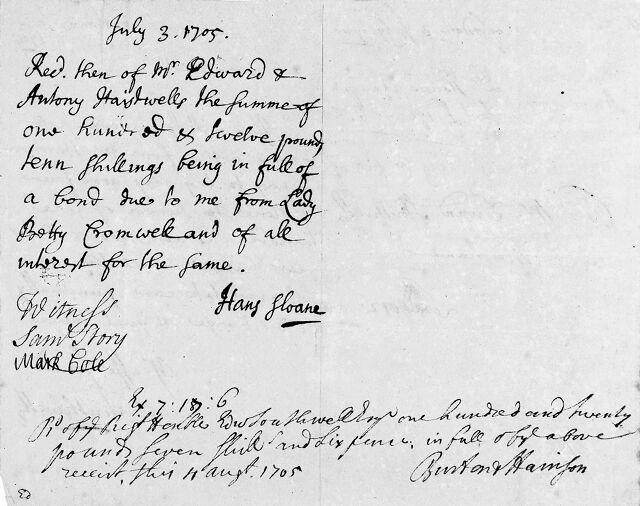 July 3. 1705.
Recd. then of Mr. Edward &
Antony Haistwells the summe of
one hundred & twelve pounds
tenn shillings being in full of
a bond due to me from Lady
Betty Cromwell and of all
interest for the same.
Hans Sloane
Witness
Saml. Story
Mark Cole
7: 17: 6
Edw Southwell Esqr one hundred and twenty
pounds seven shills and six pence, in full of ye above
receipt, this 11 augt. 1705
Burton & Harrison
Ed